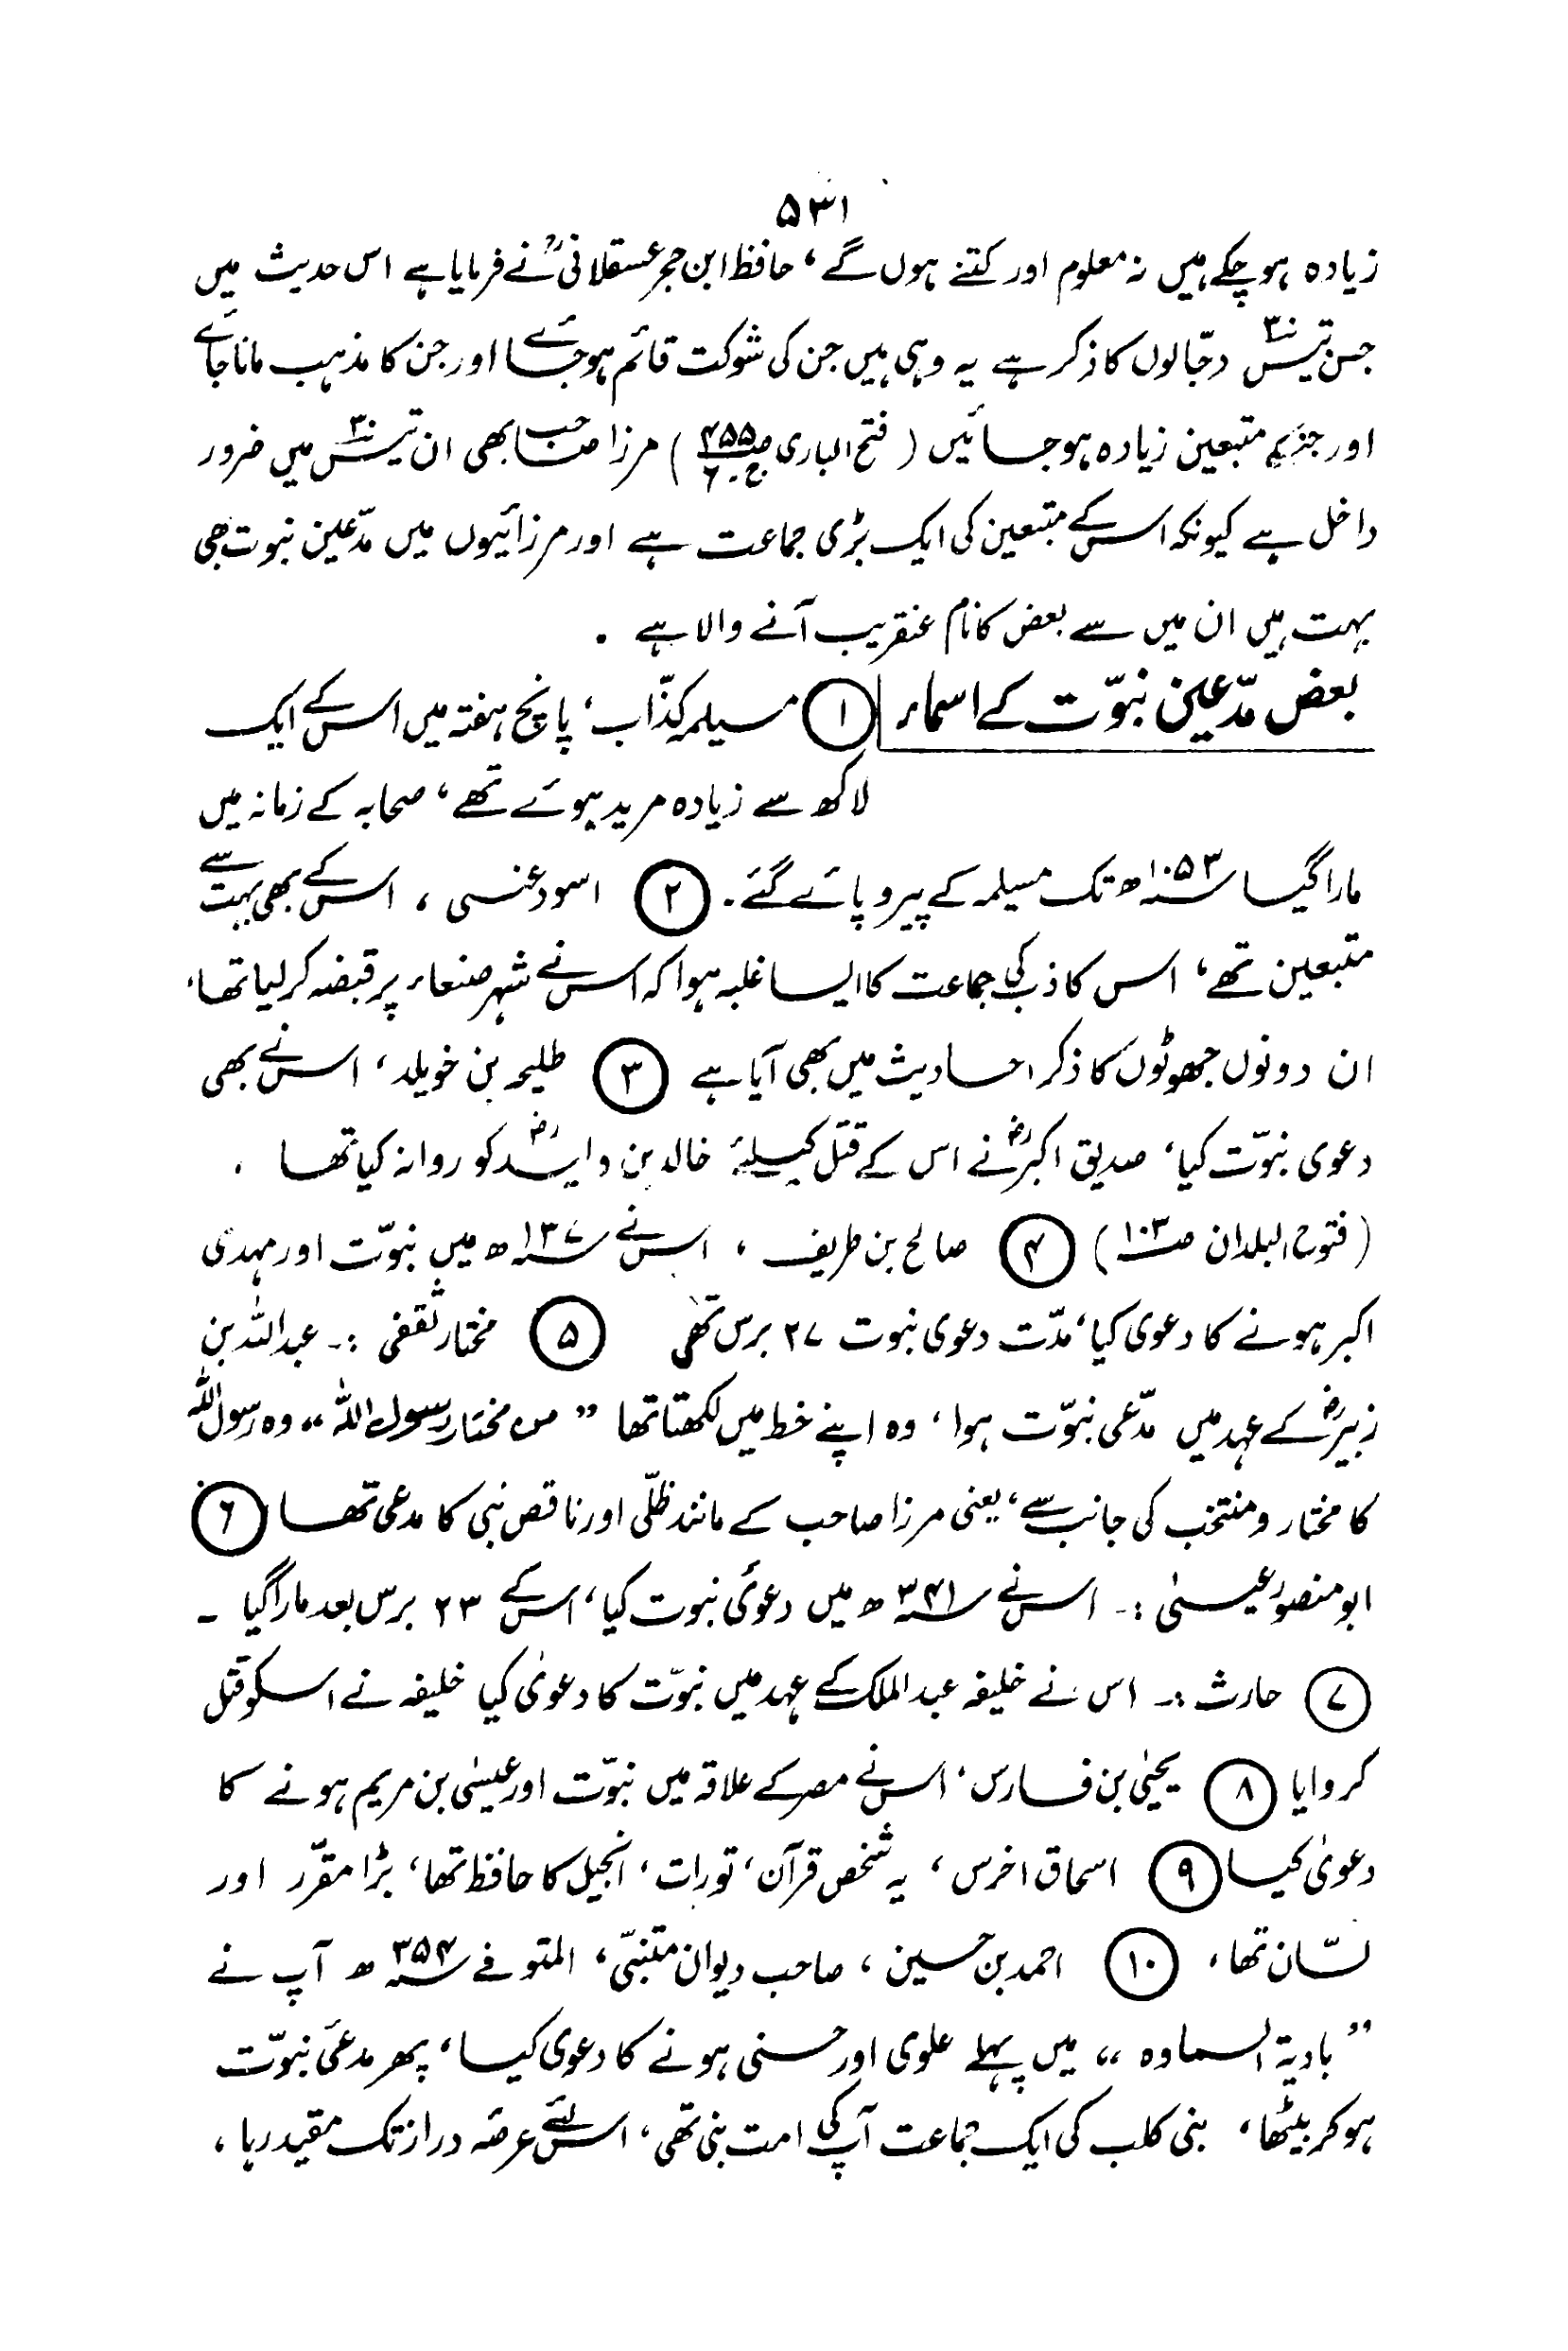 ۵۳۱
زیادہ ہوچکے ہیں نہ معلوم اور کتنے ہوں گے، حافظ ابن حجر عسقلانیؒ نے فرمایا ہے اس حدیث میں
جن تیس۳۰ دجّالوں کا ذکر ہے یہ وہی ہیں جن کی شوکت قائم ہوجائے اور جن کا مذہب مانا جائے
اور جنکے متبعین زیادہ ہوجائیں (فتح الباری ص۴۵۵ ج۔۶) مرزا صاحب بھی ان تیس۳۰ میں ضرور
داخل ہے کیونکہ اس کے متبعین کی ایک بڑی جماعت ہے اور مرزائیوں میں مدّعین نبوت بھی
بہت ہیں ان میں سے بعض کا نام عنقریب آنے والا ہے ۔
بعض مدّعین نبوّت کے اسماء ① مسیلمہ کذّاب، پانچ ہفتہ میں اس کے ایک
لاکھ سے زیادہ مرید ہوئے تھے، صحابہ کے زمانہ میں
مارا گیا ۱۰۵۳ھ تک مسیلمہ کے پیرو پائے گئے۔ ② اسود عنسی، اس کے بھی بہت سے
متبعین تھے، اس کاذب کی جماعت کا ایسا غلبہ ہوا کہ اس نے شہر صنعاء پر قبضہ کرلیا تھا،
ان دونوں جھوٹوں کا ذکر احادیث میں بھی آیا ہے ③ طلیحہ بن خویلد، اس نے بھی
دعوی نبوّت کیا، صدیق اکبرؓ نے اس کے قتل کیلئے خالد بن ولیدؓ کو روانہ کیا تھا ۔
(فتوح البلدان ص۱۰۳) ④ صالح بن طریف، اس نے ۱۳۷ھ میں نبوّت اور مہدی
اکبر ہونے کا دعوی کیا، مدّت دعوی نبوت ۲۷ برس تھی ⑤ مختار ثقفی :۔ عبداللہ بن
زبیرؓ کے عہد میں مدّعی نبوّت ہوا، وہ اپنے خط میں لکھتا تھا ”من مختار رسول اللہ“ وہ رسول اللہ
کا مختار و منتخب کی جانب سے، یعنی مرزا صاحب کے مانند ظلّی اور ناقص نبی کا مدعی تھا ⑥
ابو منصور عیسٰی :۔ اس نے ۳۴۱ھ میں دعوئ نبوت کیا، اس کے ۲۳ برس بعد مارا گیا ۔
⑦ حارث :۔ اس نے خلیفہ عبدالملک کے عہد میں نبوّت کا دعوٰی کیا خلیفہ نے اسکو قتل
کروایا ⑧ یحیٰی بن فارس، اس نے مصر کے علاقہ میں نبوّت اور عیسٰی بن مریم ہونے کا
دعوٰی کیا ⑨ اسحاق اخرس، یہ شخص قرآن، تورات، انجیل کا حافظ تھا، بڑا مقرّر اور
لسّان تھا، ⑩ احمد بن حسین، صاحب دیوان متنبّی، المتوفے ۳۵۴ھ آپ نے
”بادیۃ السماوہ“ میں پہلے علوی اور حسنی ہونے کا دعوی کیا، پھر مدعئ نبوّت
ہوکر بیٹھا، بنی کلب کی ایک جماعت آپ کی امت بنی تھی، اس لئے عرصہ دراز تک مقید رہا،